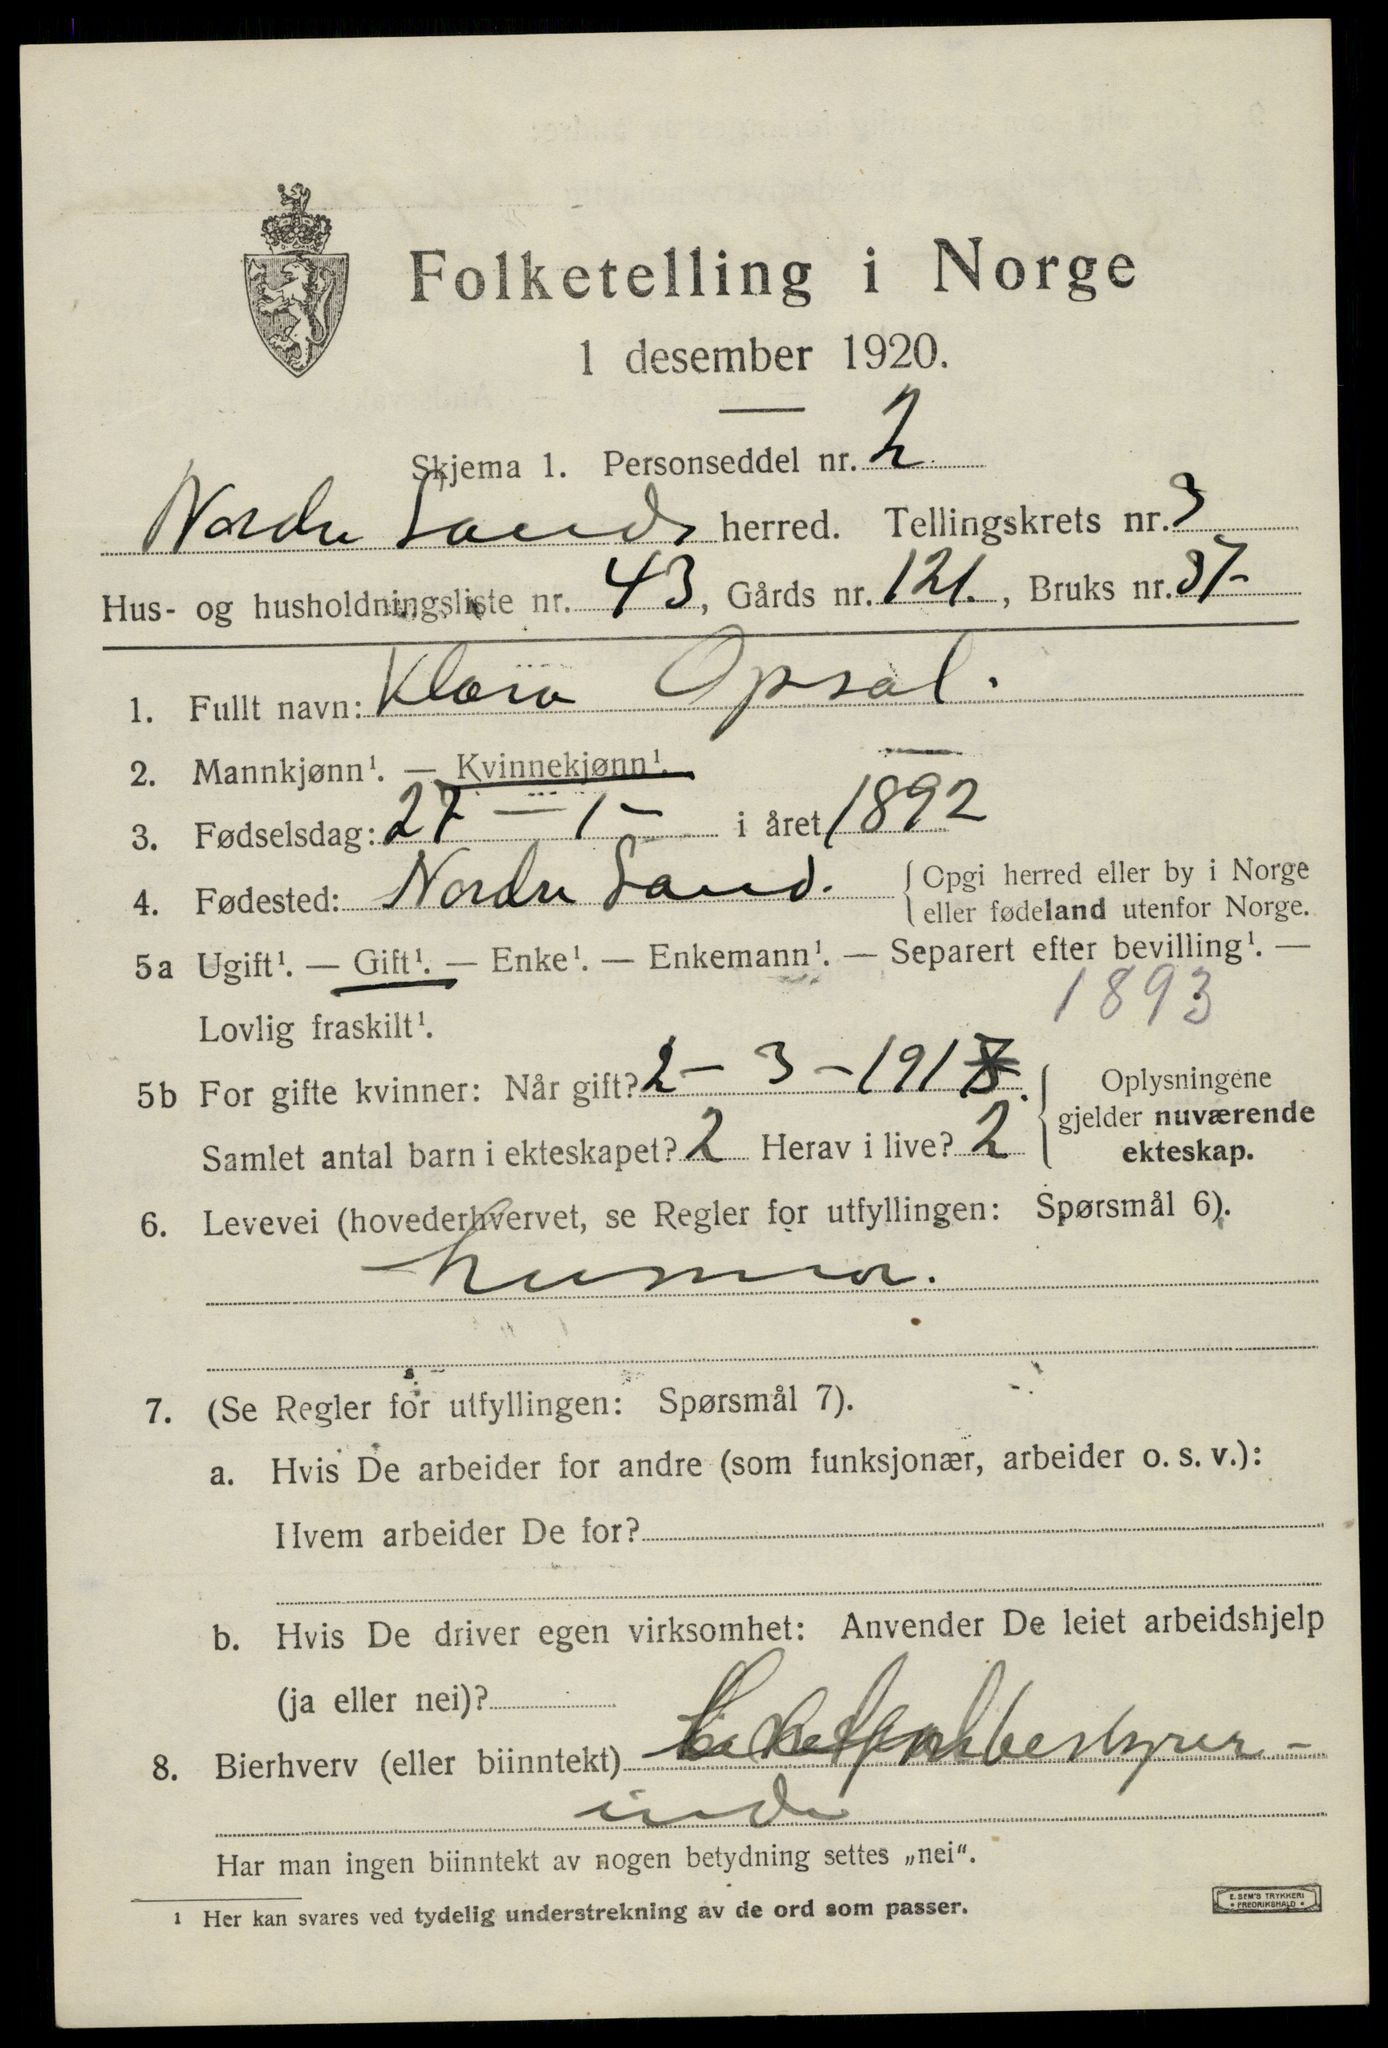 Folketelling i Norge
1 desember 1920.
Skjema 1. Personseddel nr. 2
Nordre Lands herred. Tellingskrets nr. 3
Hus- og husholdningsliste nr. 43, Gårds nr. 121., Bruks nr. 37-
1. Fullt navn: Klara Opsal.
2. Mannkjønn¹. — Kvinnekjønn¹.
3. Fødselsdag: 27 — 1 — i året 1892
4. Fødested: Nordre Land. {Opgi herred eller by i Norge
eller fødeland utenfor Norge.
5a Ugift¹. — Gift¹. — Enke¹. — Enkemann¹. — Separert efter bevilling¹. —
Lovlig fraskilt¹. 1893
5b For gifte kvinner: Når gift? 2 — 3 — 191 { Oplysningene
gjelder nuværende
Samlet antal barn i ekteskapet? 2 Herav i live? 2 ekteskap.
6. Levevei (hovederhvervet, se Regler for utfyllingen: Spørsmål 6).
husmor.
7. (Se Regler for utfyllingen: Spørsmål 7).
a. Hvis De arbeider for andre (som funksjonær, arbeider o. s. v.):
Hvem arbeider De for?
b. Hvis De driver egen virksomhet: Anvender De leiet arbeidshjelp
(ja eller nei)?
8. Bierhverv (eller biinntekt) bestyrer-
inde
Har man ingen biinntekt av nogen betydning settes „nei“.
¹ Her kan svares ved tydelig understrekning av de ord som passer.
E. SEM'S TRYKKERI
* FREDRIKSHALD *